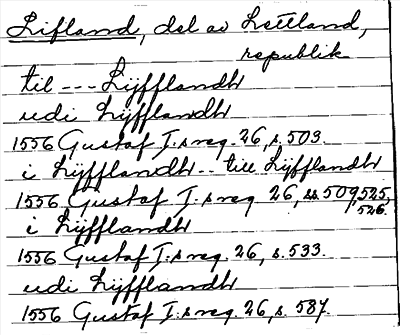 Lifland, del av Lettland,
republik
til --- Lijfflandh
udi Lijfflandh
1556 Gustaf I:s reg. 26, s. 503.
i Lijfflandh -- till Lijfflandh
1556 Gustaf I:s reg 26, ss. 509, 525,
526.
i Lijfflandh
1556 Gustaf I:s reg. 26, s. 533.
udi Lijfflandh
1556 Gustaf I:s reg. 26, s. 587.